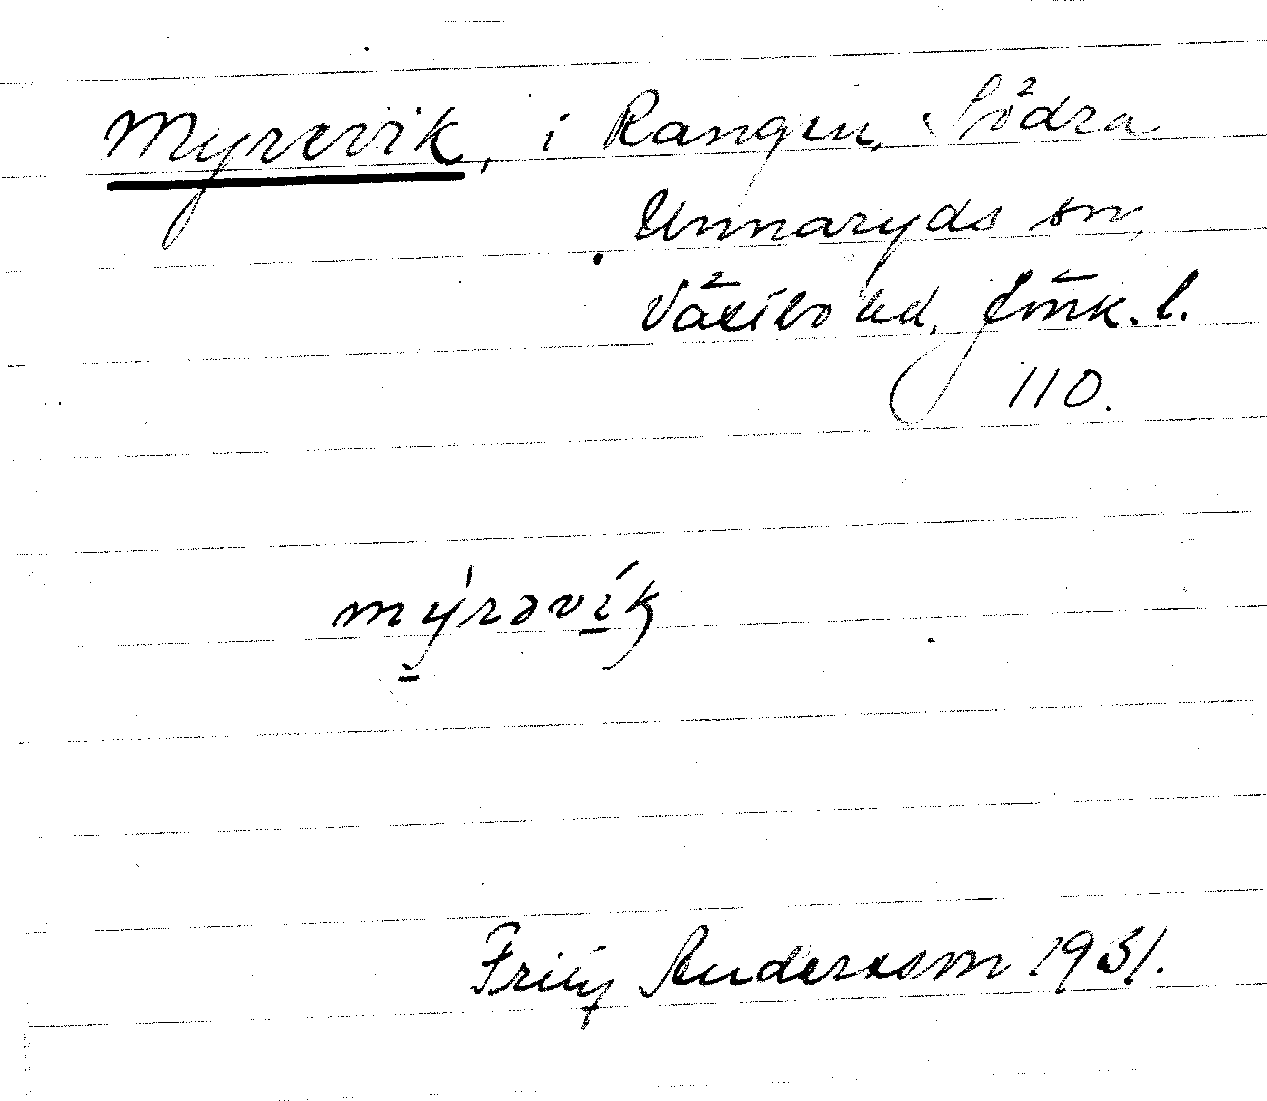 Myrevik, i Rangen, Södra
Unnaryds sn,
Västbo hd, Jönk. l.
110.
mýrəvík
Fritz Andersson 1931.